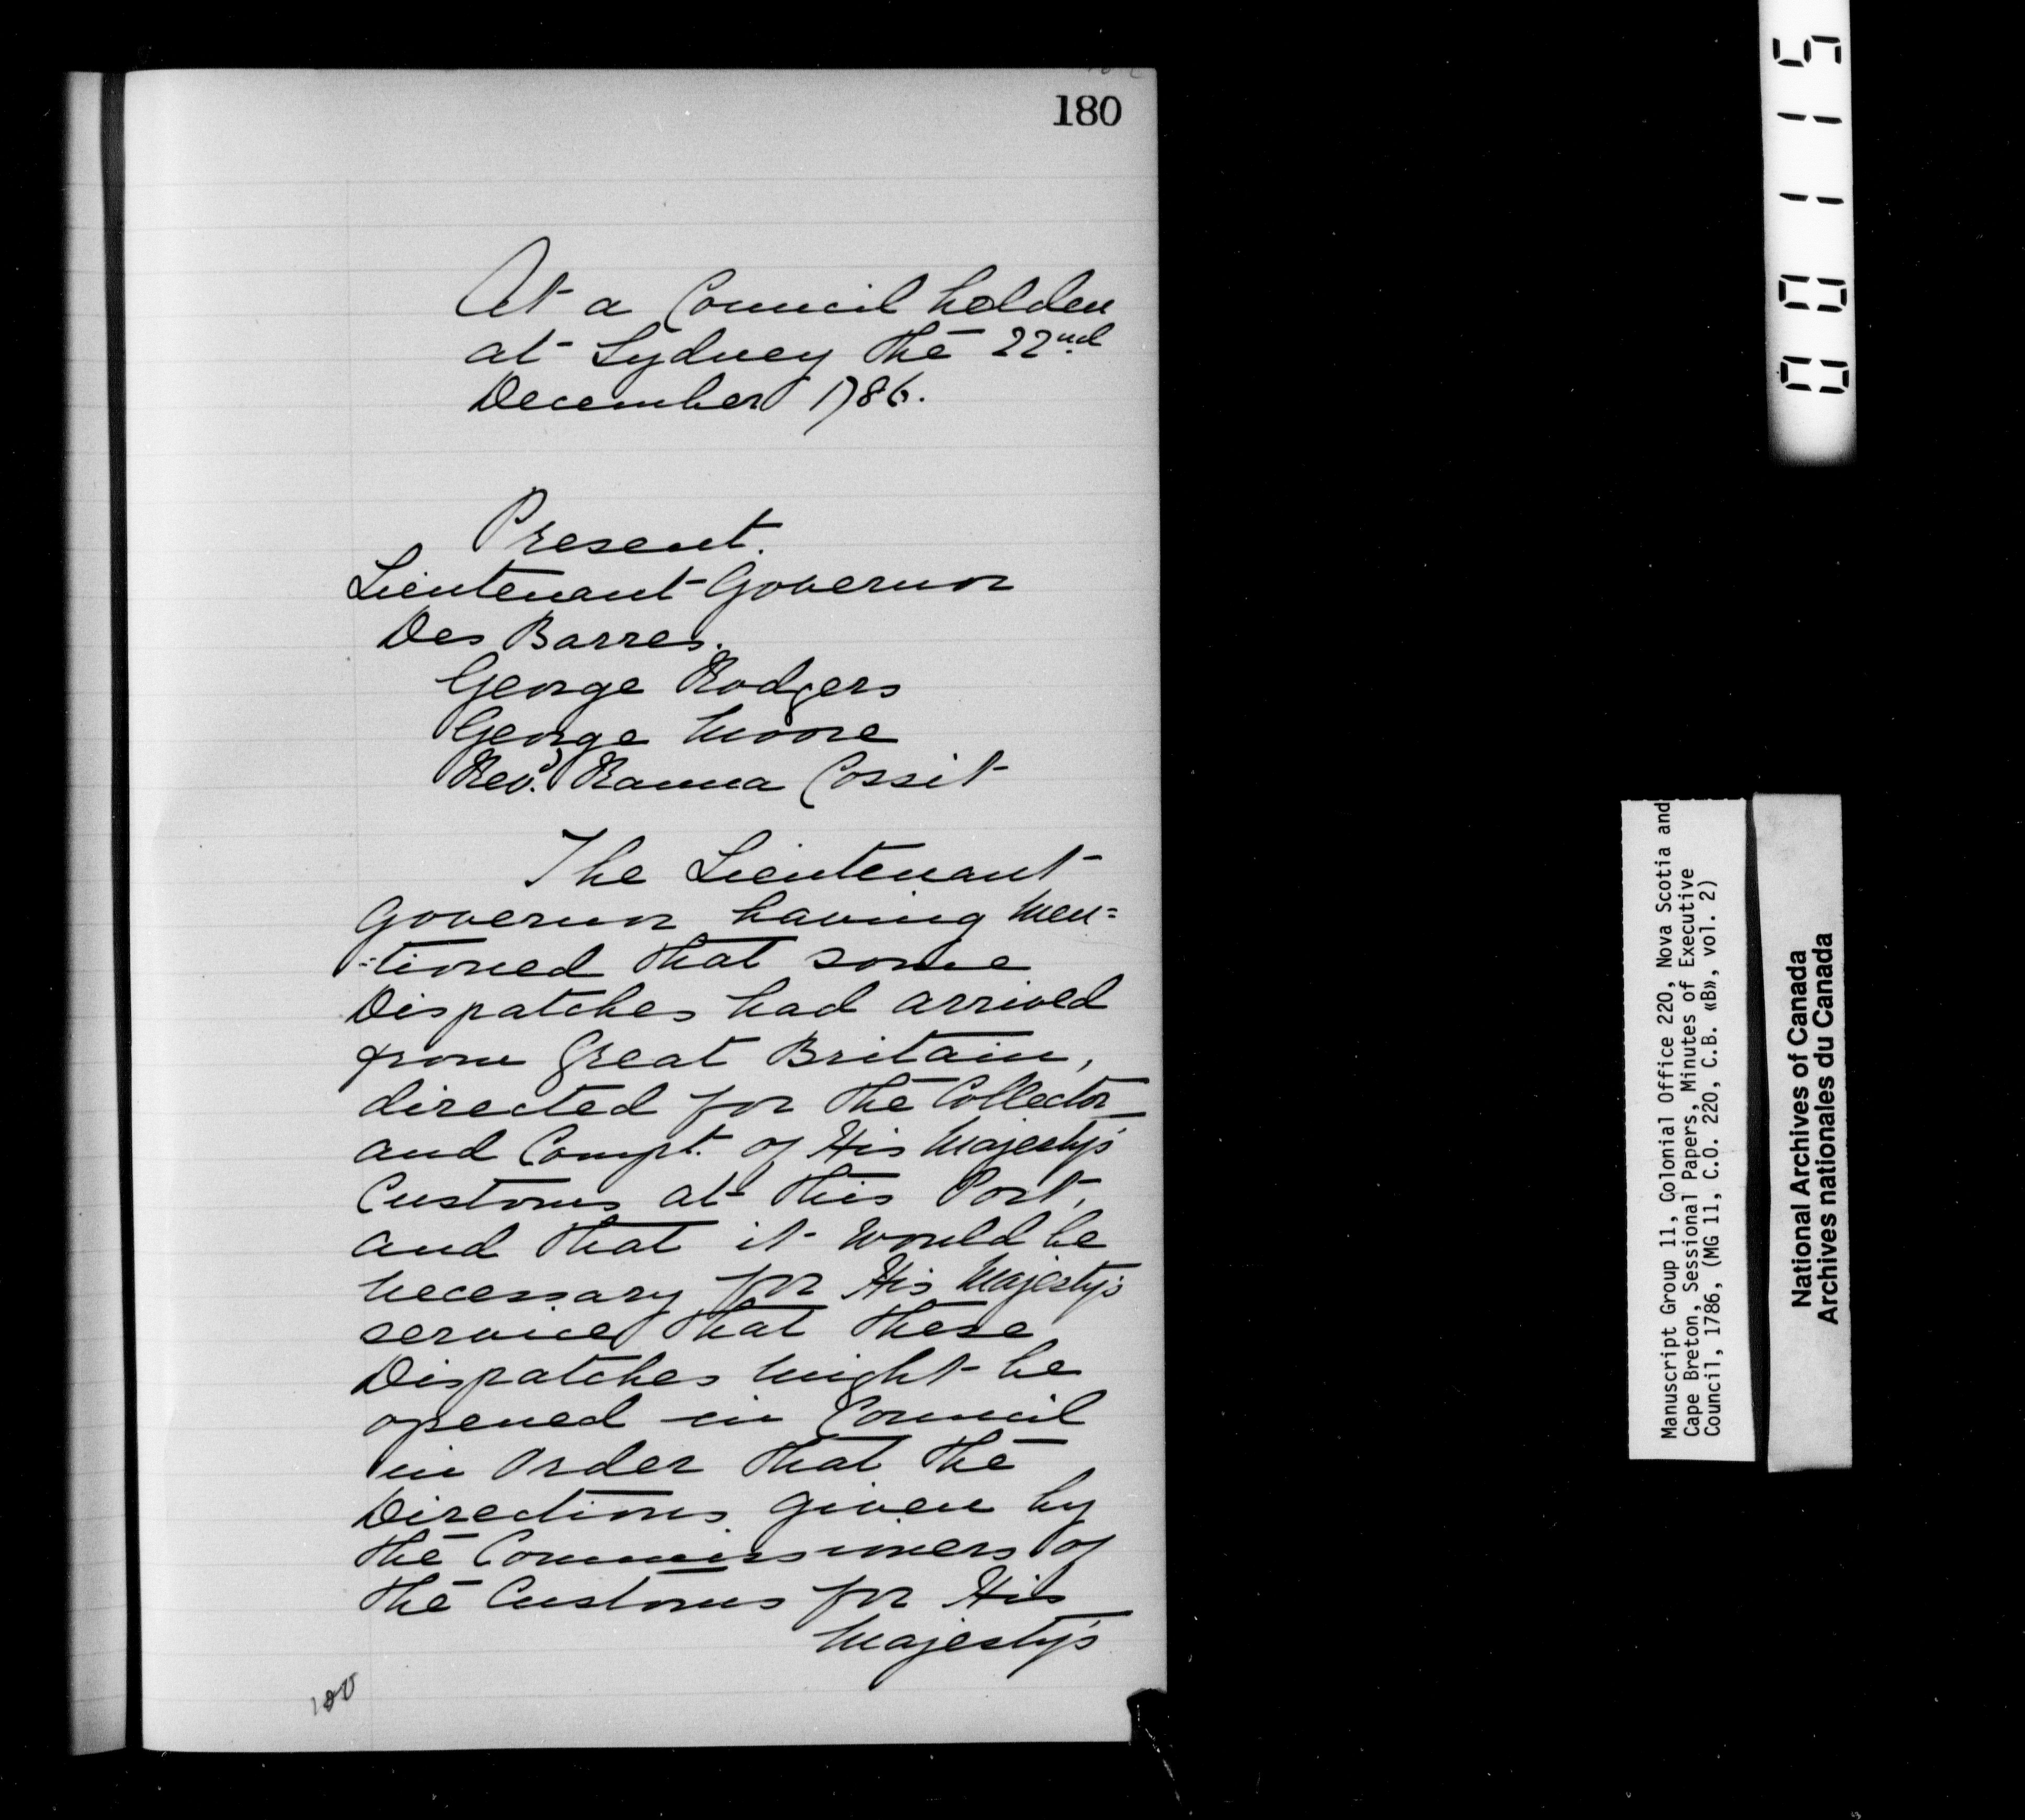 180
At a Council holden
at Sydney the 22nd
December 1786.
Present.
Lieutenant Governor
Des Barres.
George Rodgers
George Moore
Revd. Ranna Cossit
The Lieutenant
Governor having men=
=tioned that some
Dispatches had arrived
from Great Britain,
directed for the Collector
and Compt. of His Majesty's
Customs at this Port,
and that it would be
necessary for His Majesty's
service that these
Dispatches might be
opened in Council
in Order that the
Directions given by
the Commissioners of
the Customs for His
Majesty's
180
001115
Manuscript Group 11, Colonial Office 220, Nova Scotia and
Cape Breton, Sessional Papers, Minutes of Executive
Council, 1786, (MG 11, C.O. 220, C.B. «B», vol. 2)
National Archives of Canada
Archives nationales du Canada